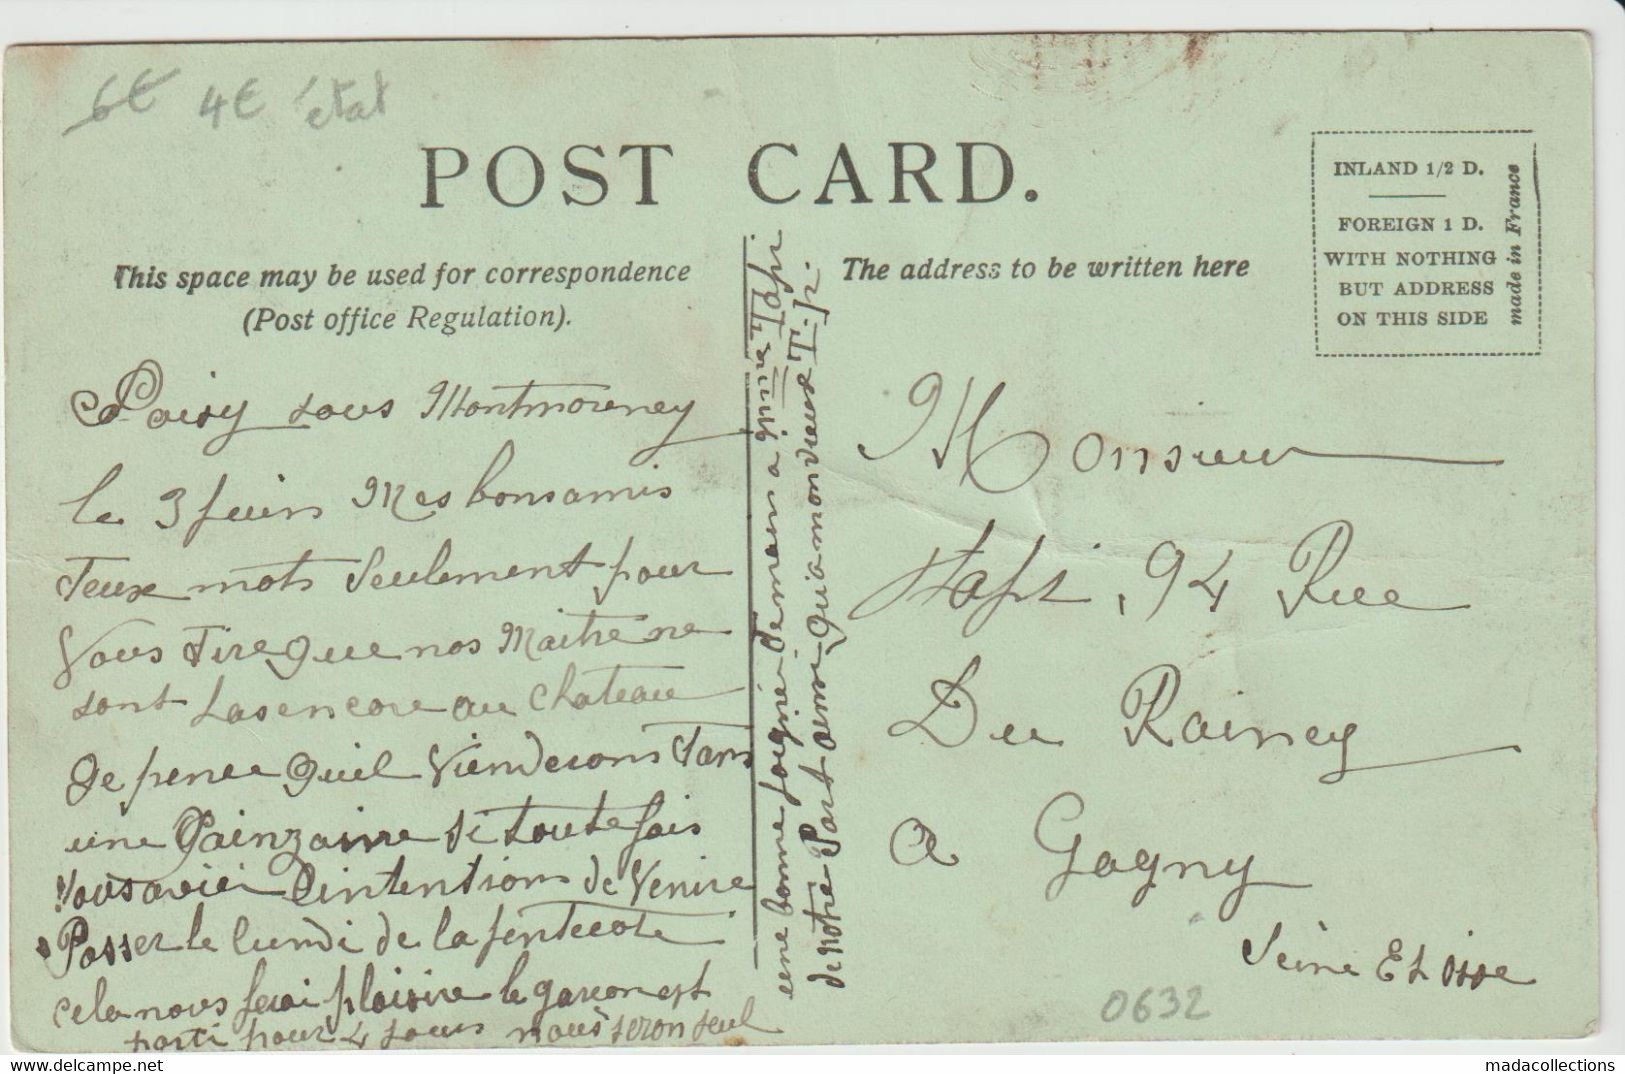 6€ 4€ état
POST CARD.
This space may be used for correspondence
(Post office Regulation).
The address to be written here
INLAND 1/2 D.
FOREIGN 1 D.
WITH NOTHING
BUT ADDRESS
ON THIS SIDE
made in France
sous Montmorency
le 3 juin Mes bons amis
Deux mots Seulement pour
Vous Dire que nos Maitre ne
sont pas encore au chateau
Je pence quil Viendrons Dans
une Qainzaine Si toute fois
Vous aviei L'intentions de Venire
Passer le lundi de la pentecote
cela nous ferai plaisire le garcon est
parti pour 4 jours nous seron seul
une bonne poigné Demain a Mme Tapi
de notre Part ainsi qu'a mon vieux T.pi.
Monsieur
Tapi, 94 Rue
Du Raincy
a Gagny
Seine Et Oise
0632
madacollections